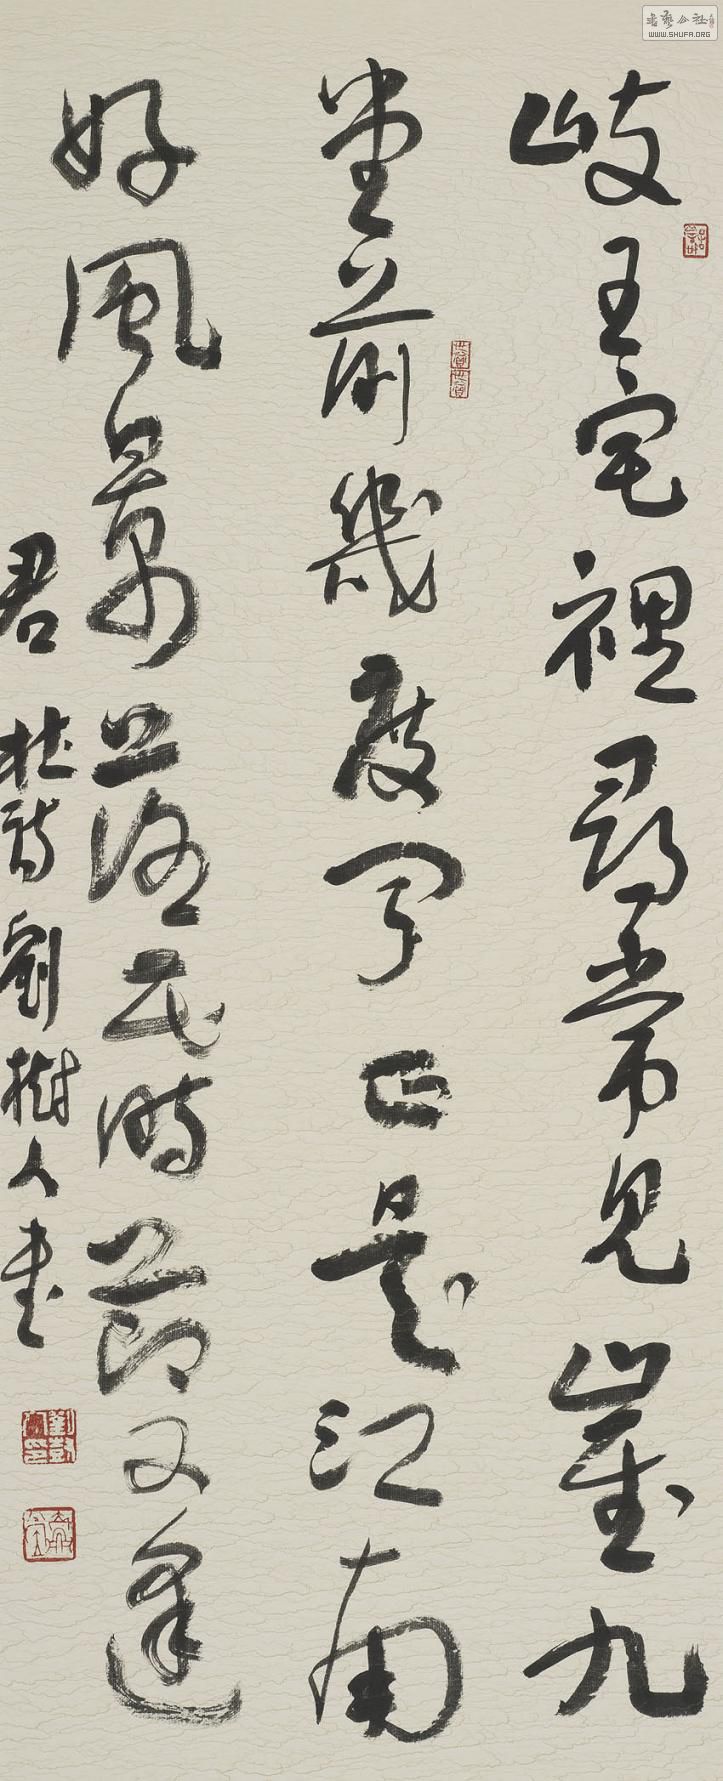 岐王宅裡尋常見崔九
堂前幾度聞正是江南
好風景落花時節又逢
君 杜詩 劉樹人書
WWW.SHUFA.ORG